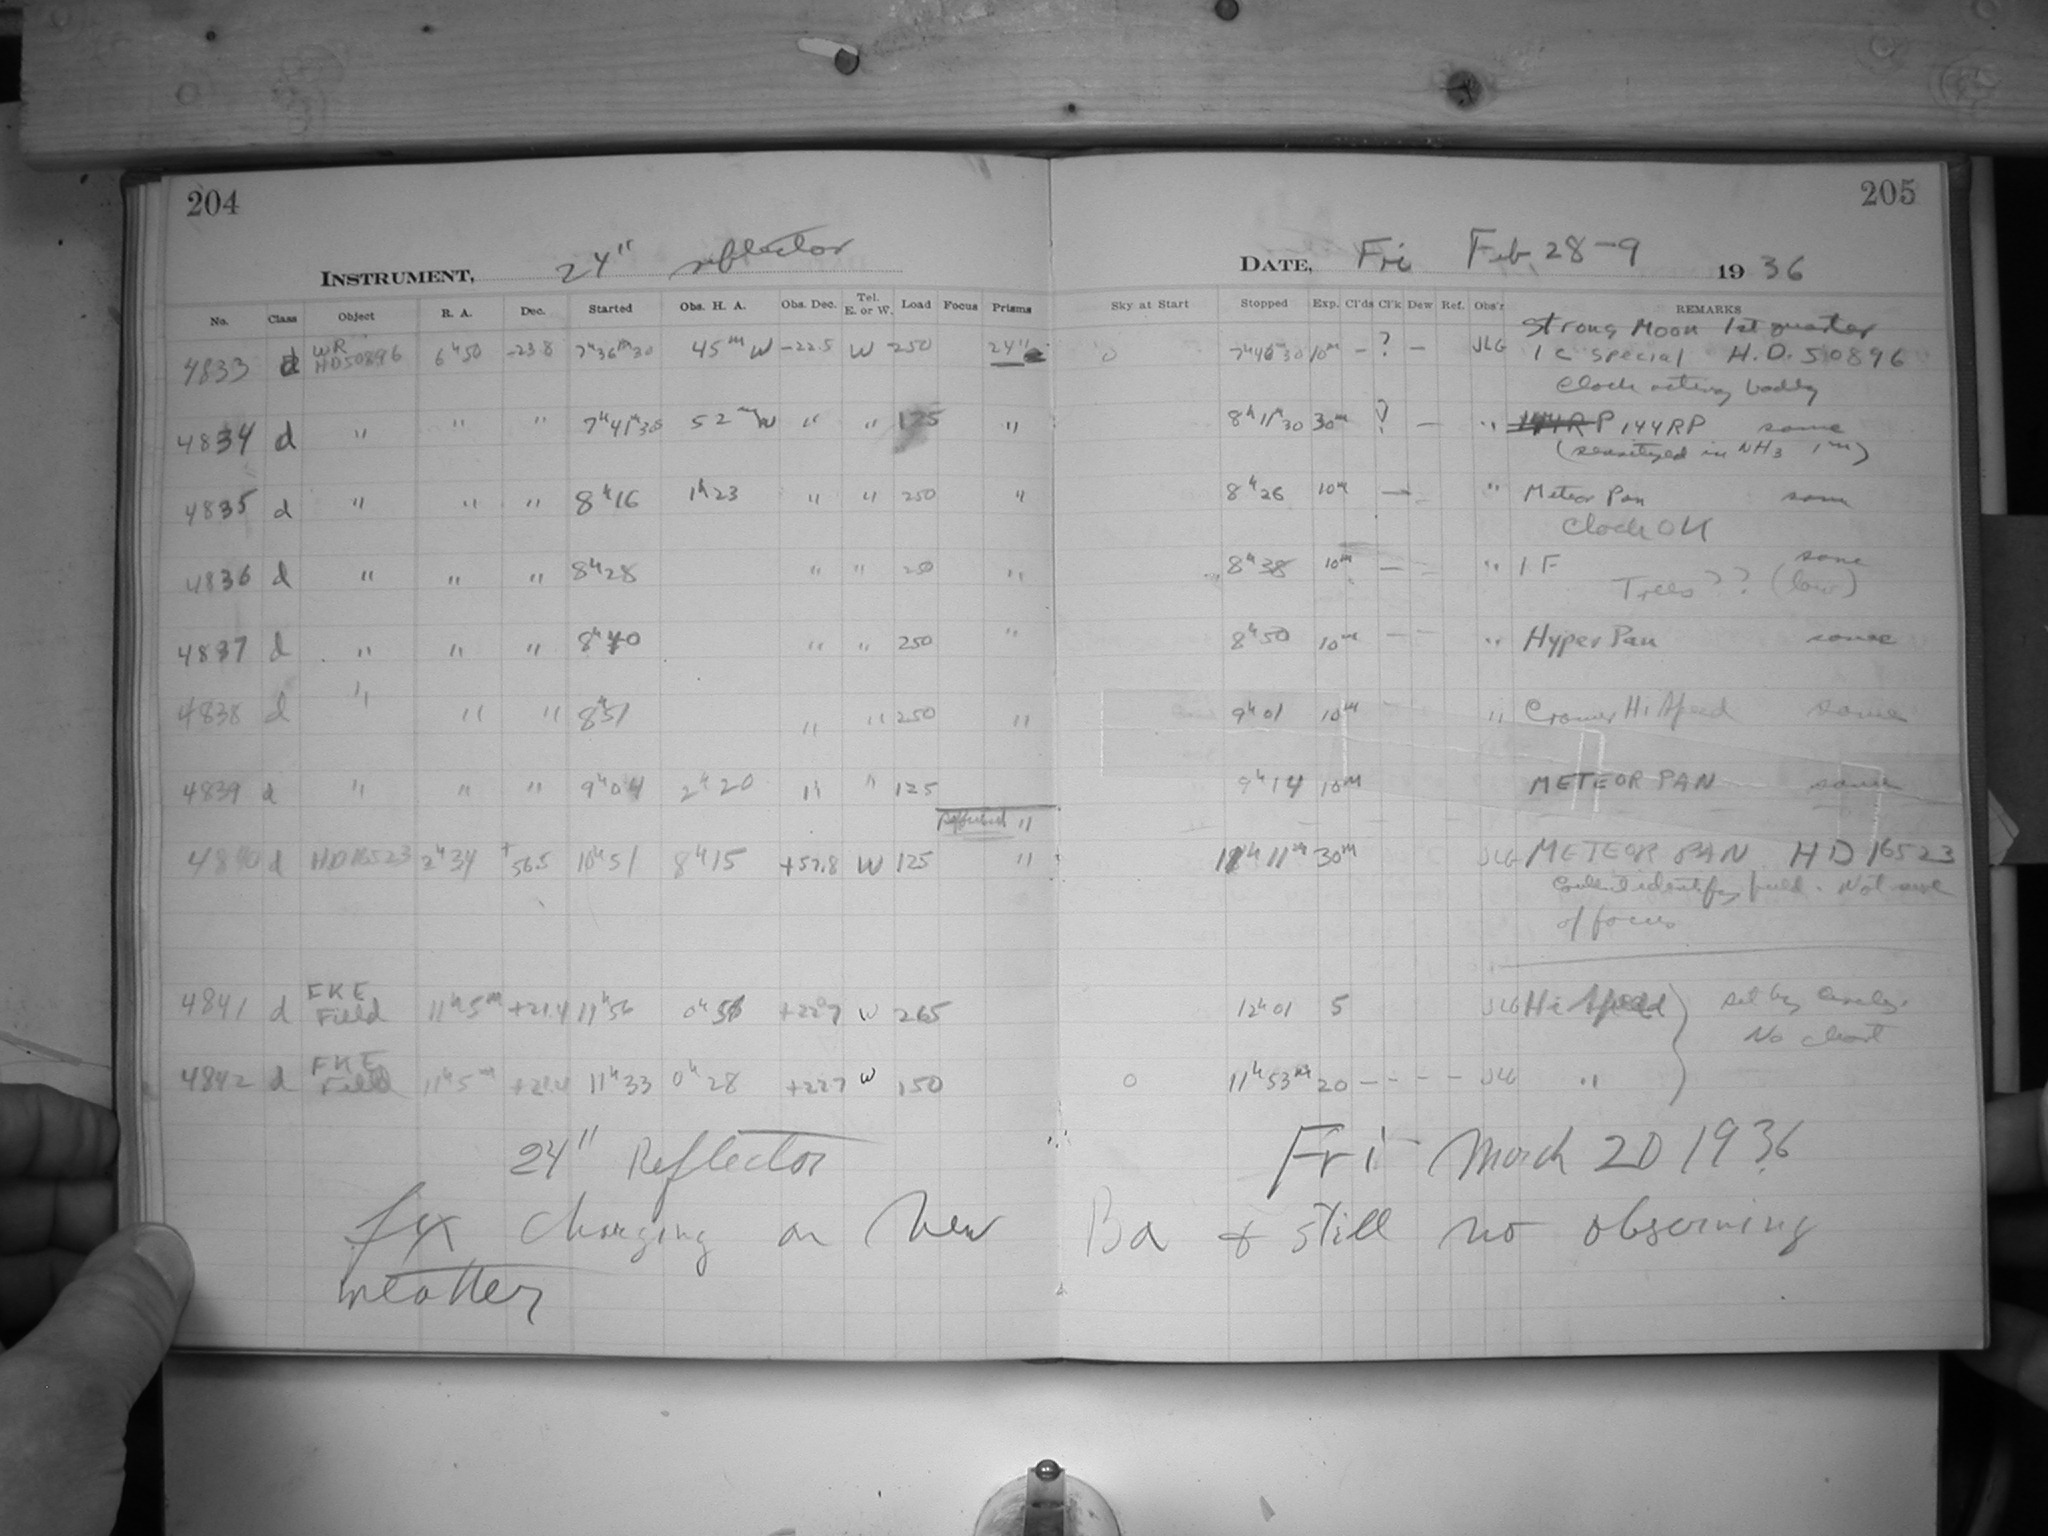 204
205
INSTRUMENT, 24" reflector
DATE, Fri Feb 28-9 1936
No. Class Object R. A. Dec. Started Obs. H. A. Obs. Dec. Tel. E. or W. Load Focus Prisms Sky at Start Stopped Exp. Cl'ds Cl'k Dew Ref. Obs'r REMARKS
Strong Moon 1st quarter
4833 d WR HD50896 6h50 -23.8 7h36m30 45m W -22.5 W 250 24" 0 7h46m30 10m - ? - JLG 1 C special H.D. 50896
Clock acting badly
4834 d " " " 7h41m30 52m W " " 125 " 8h11m30 30m ? - " 144RP same
(sensitized in NH3 1m)
4835 d " " " 8h16 1h23 " " 250 " 8h26 10m - " Meteor Pan same
Clock OK
4836 d " " " 8h28 " " 250 " 8h38 10m - - " 1 F same
Trees ?? (low)
4837 d " " " 8h40 " " 250 " 8h50 10m - - " Hyper Pan same
4838 d " " " 8h51 " " 250 " 9h01 10m - " Cramer Hi Speed same
4839 d " " " 9h04 2h20 " " 125 9h14 10m METEOR PAN same
"
4840 d HD16523 2h34 +56.5 10h51 8h15 +57.8 W 125 " 11h11m 30m JLG METEOR PAN HD 16523
Couldn't identify field. Not sure
of focus
4841 d FKE Field 11h5m +21.4 11h56 0h51 +22.7 W 265 12h01 5 JLG Hi Speed set by circles.
No chart
4842 d FKE Field 11h5m +21.4 11h33 0h28 +22.7 W 150 0 11h53m 20 - - - - JLG "
24" Reflector Fri March 20 1936
changing on New Ba & still no observing
weather